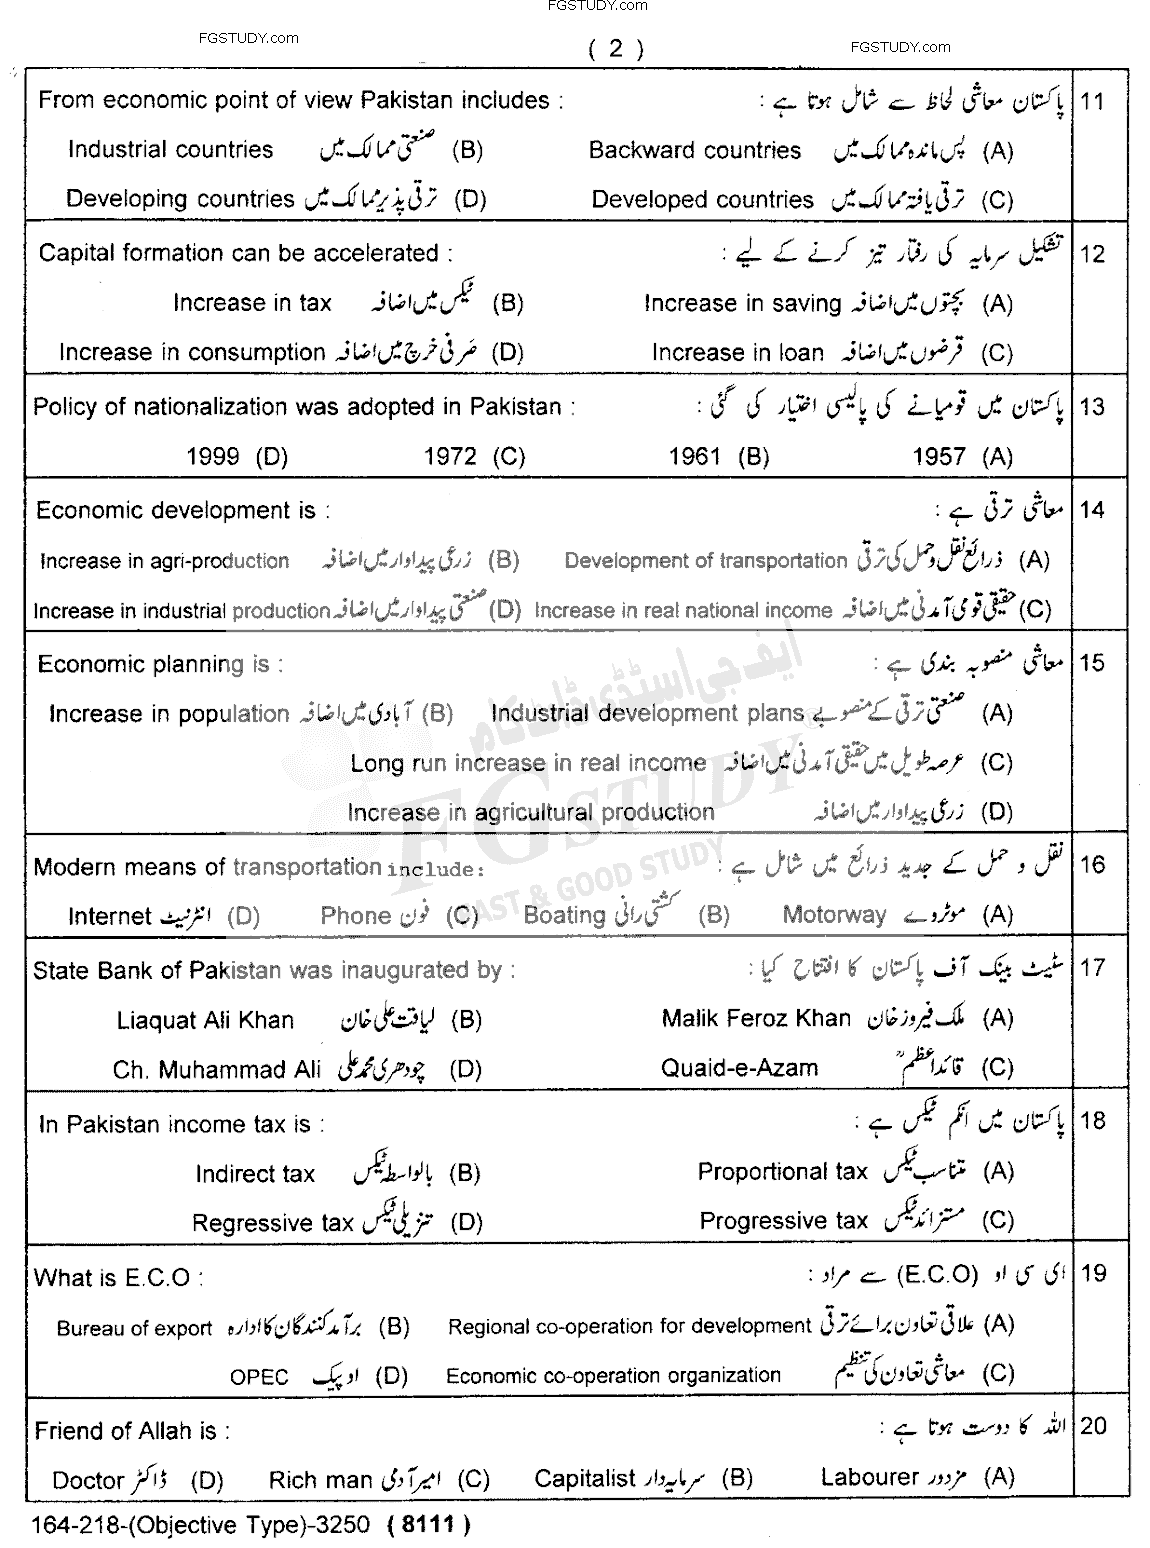 FGSTUDY.com
FGSTUDY.com
( 2 )
FGSTUDY.com
From economic point of view Pakistan includes : پاکستان معاشی لحاظ سے شامل ہوتا ہے : 11
Industrial countries صنعتی ممالک میں (B) Backward countries پس ماندہ ممالک میں (A)
Developing countries ترقی پذیر ممالک میں (D) Developed countries ترقی یافتہ ممالک میں (C)
Capital formation can be accelerated : تشکیل سرمایہ کی رفتار تیز کرنے کے لیے : 12
Increase in tax ٹیکس میں اضافہ (B) Increase in saving بچتوں میں اضافہ (A)
Increase in consumption صَرفی خرچ میں اضافہ (D) Increase in loan قرضوں میں اضافہ (C)
Policy of nationalization was adopted in Pakistan : پاکستان میں قومیانے کی پالیسی اختیار کی گئی : 13
1999 (D) 1972 (C) 1961 (B) 1957 (A)
Economic development is : معاشی ترقی ہے : 14
Increase in agri-production زرعی پیداوار میں اضافہ (B) Development of transportation ذرائع نقل و حمل کی ترقی (A)
Increase in industrial production صنعتی پیداوار میں اضافہ (D) Increase in real national income حقیقی قومی آمدنی میں اضافہ (C)
Economic planning is : معاشی منصوبہ بندی ہے : 15
Increase in population آبادی میں اضافہ (B) Industrial development plans صنعتی ترقی کے منصوبے (A)
Long run increase in real income عرصہ طویل میں حقیقی آمدنی میں اضافہ (C)
Increase in agricultural production زرعی پیداوار میں اضافہ (D)
ایف جی اسٹڈی ڈاٹ کام
FGSTUDY
FAST & GOOD STUDY
Modern means of transportation include: نقل و حمل کے جدید ذرائع میں شامل ہے : 16
Internet انٹرنیٹ (D) Phone فون (C) Boating کشتی رانی (B) Motorway موٹروے (A)
State Bank of Pakistan was inaugurated by : سٹیٹ بینک آف پاکستان کا افتتاح کیا : 17
Liaquat Ali Khan لیاقت علی خان (B) Malik Feroz Khan ملک فیروز خان (A)
Ch. Muhammad Ali چودھری محمد علی (D) Quaid-e-Azam قائداعظمؒ (C)
In Pakistan income tax is : پاکستان میں انکم ٹیکس ہے : 18
Indirect tax بالواسطہ ٹیکس (B) Proportional tax متناسب ٹیکس (A)
Regressive tax تنزیلی ٹیکس (D) Progressive tax مستزاد ٹیکس (C)
What is E.C.O : ای سی او (E.C.O) سے مراد : 19
Bureau of export برآمد کنندگان کا ادارہ (B) Regional co-operation for development علاقی تعاون برائے ترقی (A)
OPEC اوپیک (D) Economic co-operation organization معاشی تعاون کی تنظیم (C)
Friend of Allah is : اللہ کا دوست ہوتا ہے : 20
Doctor ڈاکٹر (D) Rich man امیر آدمی (C) Capitalist سرمایہ دار (B) Labourer مزدور (A)
164-218-(Objective Type)-3250 ( 8111 )